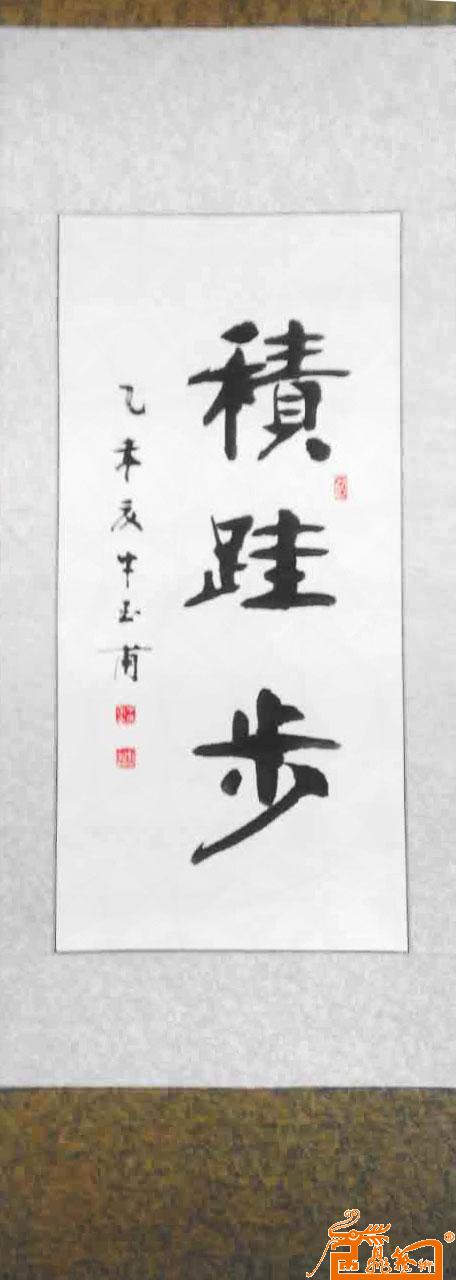 積跬步
乙未夏牛玉甫